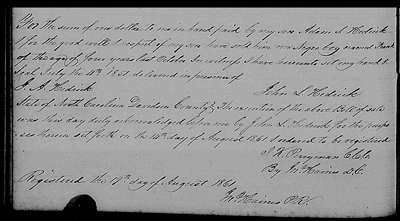 For the sum of one dollar to me in hand paid by my son Adam A Hedrick
& for the good will & respect of my son have sold him one Negro boy named Frank
of the age of four years last October In witness I have hereunto set my hand &
Seal July the 4th 1851 delivered in presence of
A. A. Hedrick John L. Hedrick
State of North Carolina Davidson County & The execution of the above Bill of sale
was this day duly acknowledged before me by John L. Hedrick for the purpo
ses therein set forth on the 14th day of August 1861 & ordered to be registered
J. K. Perryman C.C.C.
By Jno Haines D.C.
Registered the 19th day of August 1861,
Jno Haines P.R.